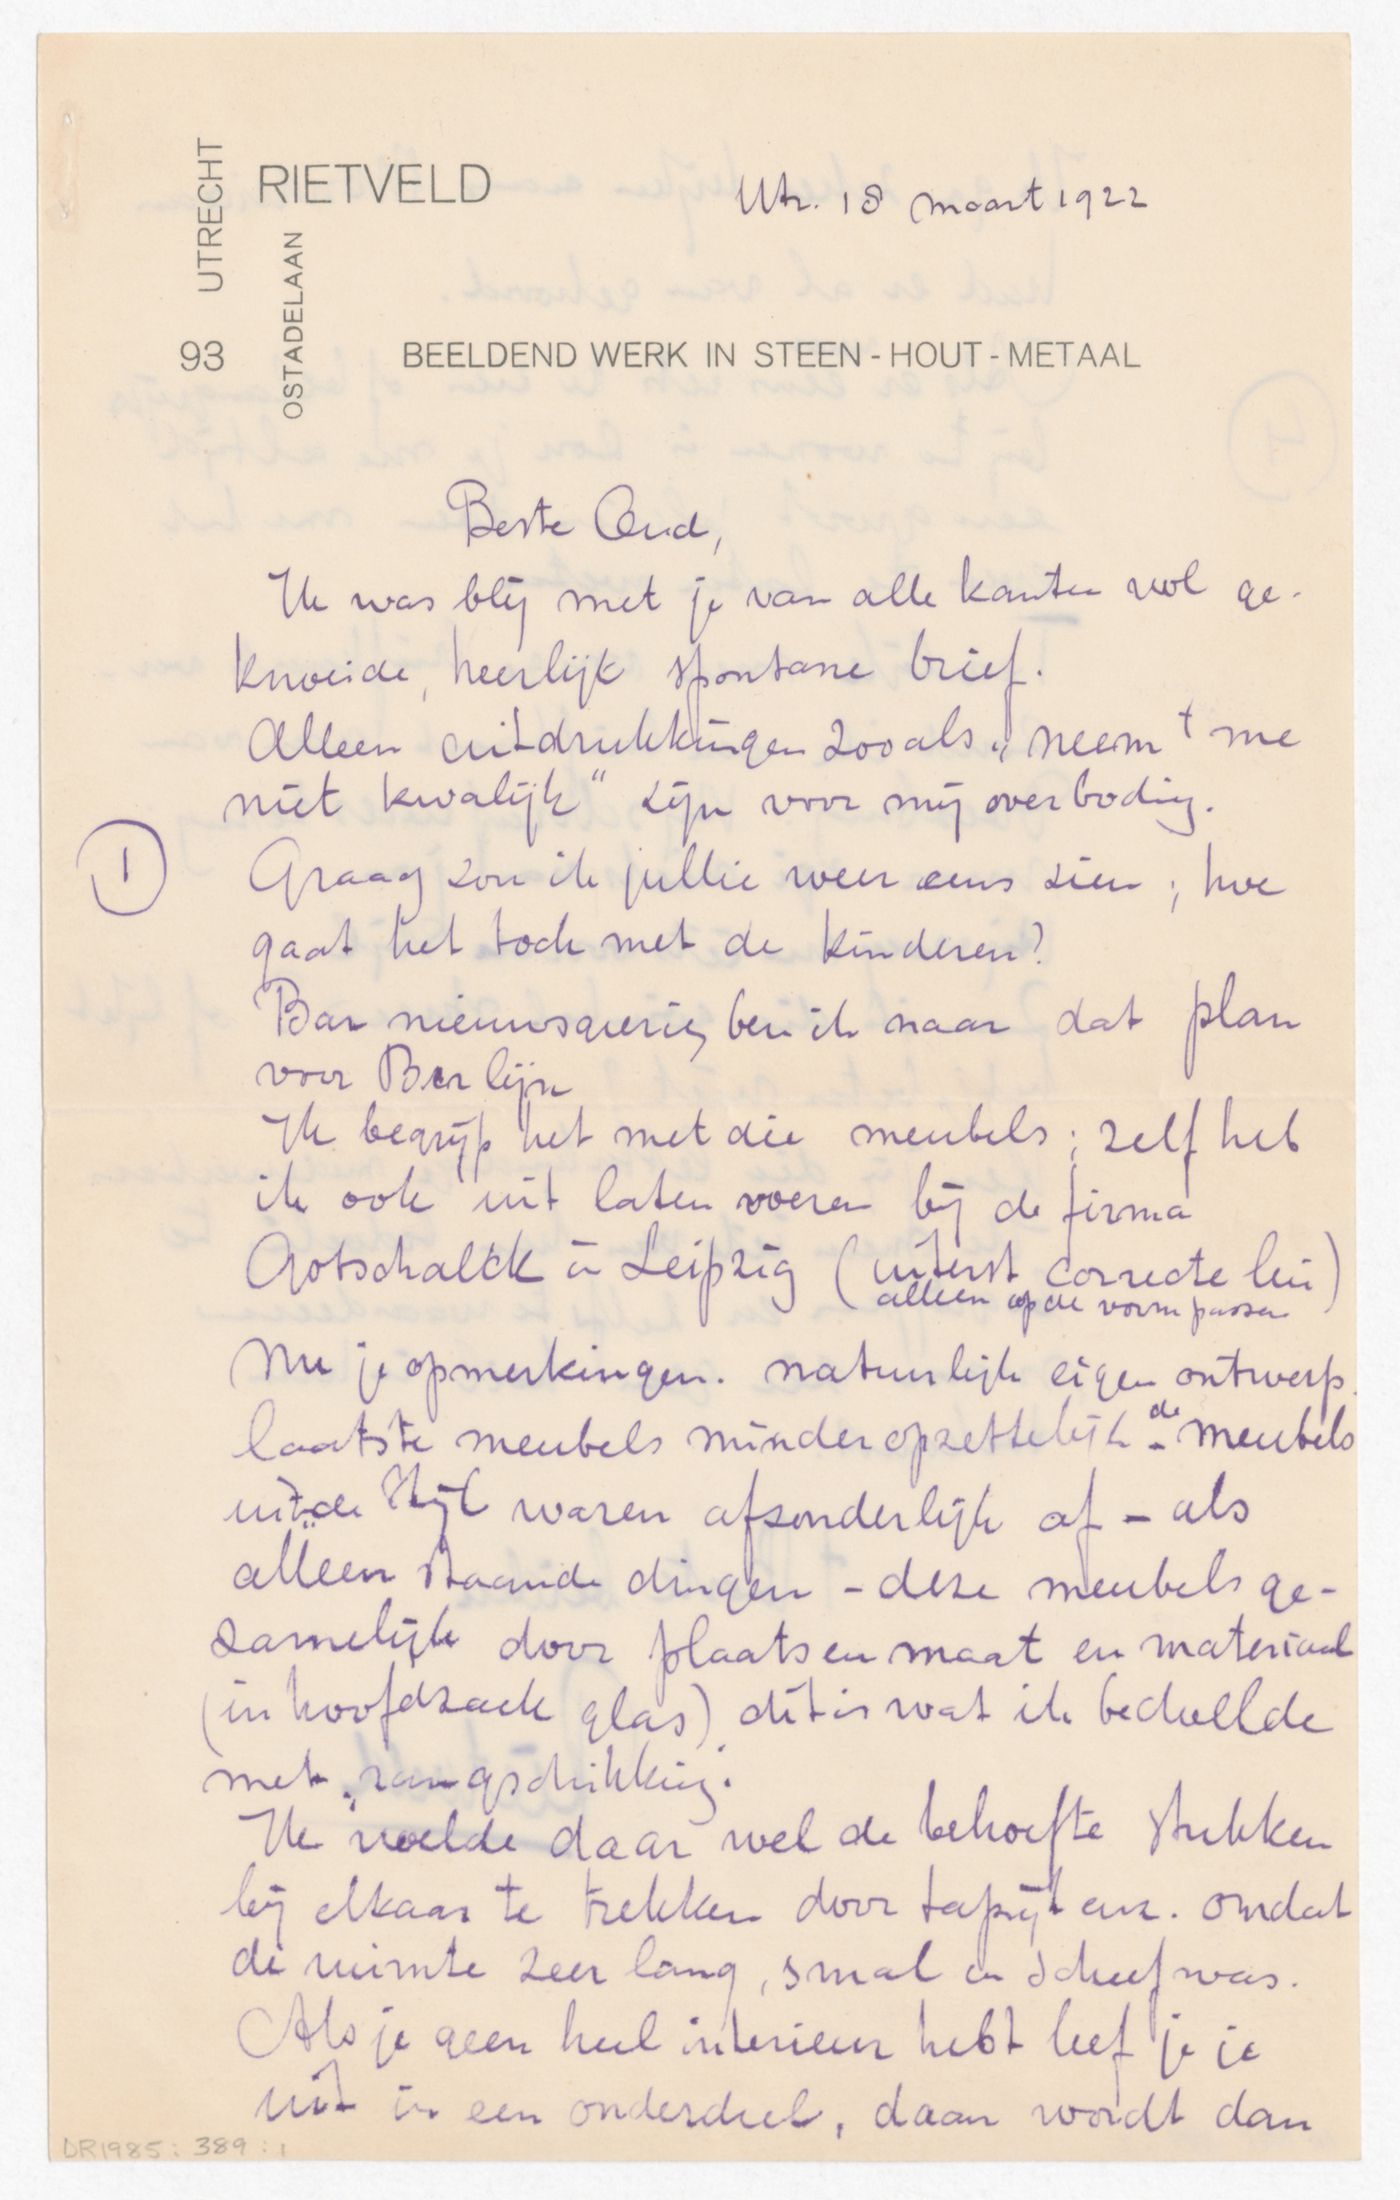 UTRECHT
RIETVELD
OSTADELAAN
93
BEELDEND WERK IN STEEN - HOUT - METAAL
Utr. 18 maart 1922
Beste Oud,
Ik was blij met je van alle kanten vol ge-
knoeide, heerlijk spontane brief.
Alleen uitdrukkingen zooals „neem 't me
niet kwalijk" zijn voor mij overbodig.
1
Graag zou ik jullie weer eens zien; hoe
gaat het toch met de kinderen?
Bar nieuwsgierig ben ik naar dat plan
voor Berlijn
Ik begrijp het met die meubels; zelf heb
ik ook uit laten voeren bij de firma
Gotschalck in Leipzig (uiterst correcte lui)
alleen op de vorm passen
Nu je opmerkingen. natuurlijk eigen ontwerp.
laatste meubels minder opzettelijk - de meubels
uit de Stijl waren afzonderlijk af - als
alléén staande dingen - deze meubels ge-
zamelijk door plaats en maat en materiaal
(in hoofdzaak glas) dit is wat ik bedoelde
met „rangschikking".
Ik voelde daar wel de behoefte stukken
bij elkaar te trekken door tapijt enz. omdat
de ruimte zeer lang, smal en scheef was.
Als je geen heel interieur hebt leef je je
uit in een onderdeel, daar wordt dan
DR1985:389:1